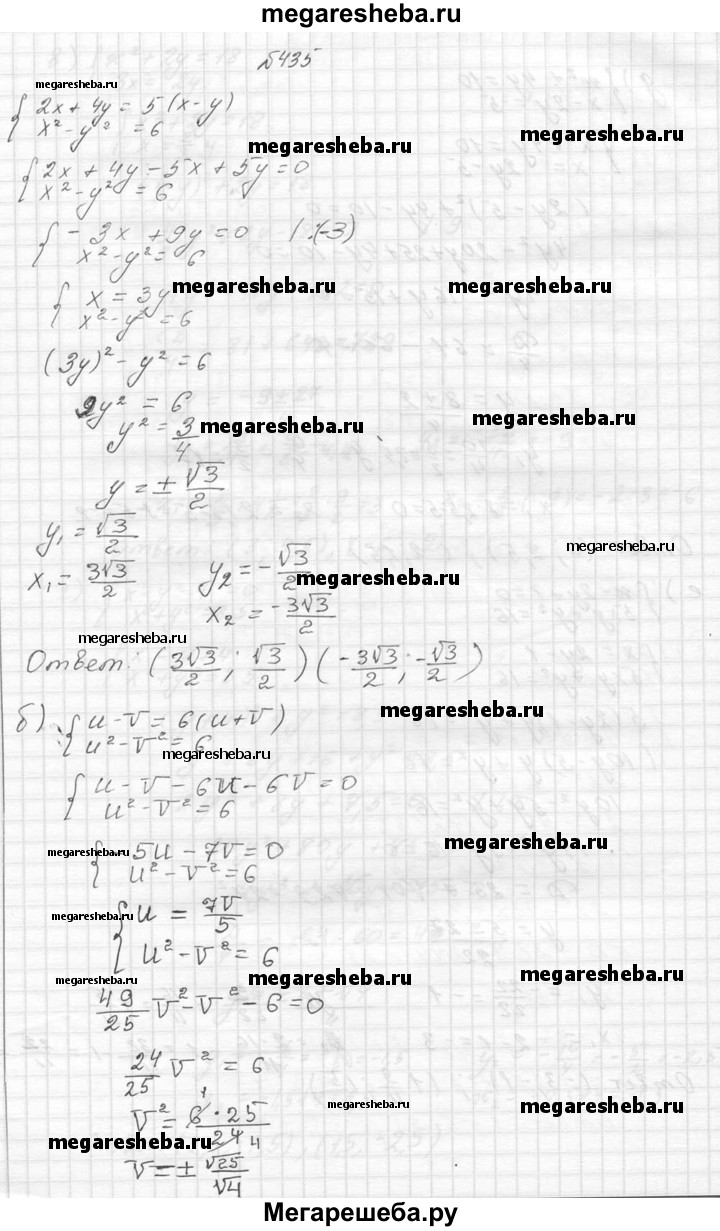 megaresheba.ru
№435
megaresheba.ru
{ 2x + 4y = 5(x - y)
x² - y² = 6
megaresheba.ru megaresheba.ru
{ 2x + 4y - 5x + 5y = 0
x² - y² = 6
{ - 3x + 9y = 0 | :(-3)
x² - y² = 6
megaresheba.ru megaresheba.ru
{ x = 3y
x² - y² = 6
(3y)² - y² = 6
y² = 6
megaresheba.ru
y² = 3/4 megaresheba.ru
y = ± √3/2
y₁ = √3/2
megaresheba.ru
x₁ = 3√3/2 y₂ = - √3/2
megaresheba.ru
x₂ = -3√3/2
megaresheba.ru
Ответ: (3√3/2; √3/2) (-3√3/2; -√3/2)
б) { u - v = 6(u + v) megaresheba.ru
u² - v² = 6
megaresheba.ru
{ u - v - 6u - 6v = 0
u² - v² = 6
megaresheba.ru
{ 5u - 7v = 0
megaresheba.ru
u² - v² = 6
megaresheba.ru
{ u = 7v/5
u² - v² = 6
megaresheba.ru megaresheba.ru megaresheba.ru
49/25 v² - v² - 6 = 0
24/25 v² = 6
megaresheba.ru megaresheba.ru
1
v² = 6 · 25/24 4
megaresheba.ru
v = ± √25/√4
Мегарешеба.ру